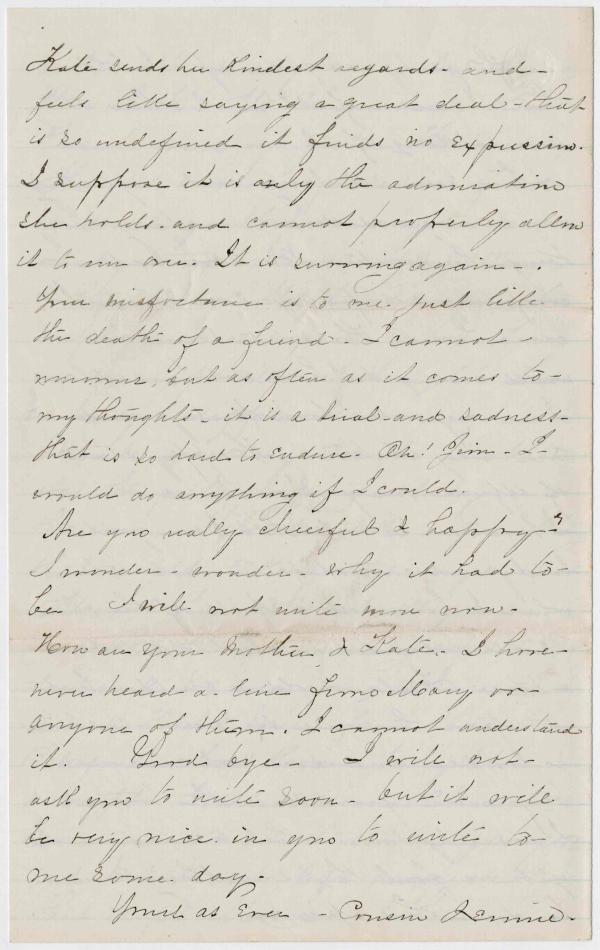 Kate sends her kindest regards - and -
feels like saying a great deal - that
is so undefined it finds no expression.
I suppose it is only the admiration
she holds. and cannot properly allow
it to run over. It is surviving again - .
Your misfortune is to me just like
the death of a friend - I cannot -
murmur, but as often as it comes to -
my thoughts - it is a trial - and sadness -
that is so hard to endure - Oh! Jim - I -
would do anything if I could.
Are you really cheerful & happy?
I wonder - wonder - why it had to -
be I will not write more now -
How are your Mother & Kate. - I have -
never heard a - line from Mary or -
anyone of them. I cannot understand
it. Good bye - I will not -
ask you to write soon - but it will
be very nice in you to write to -
me some day -
Yours as Ever - Cousin Jennie -